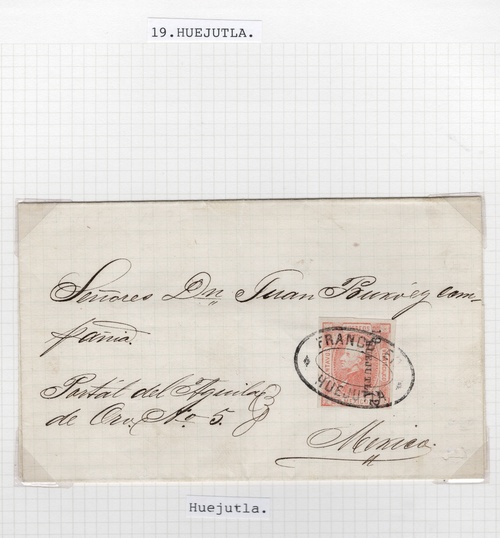 19.HUEJUTLA.
Señores Dn Juan Buxó y com-
pañia.
Portál del Aguila
de Oro, No 5.
FRANCO
HUEJUTLA
HUEJUTLA
Mexico.
Huejutla.